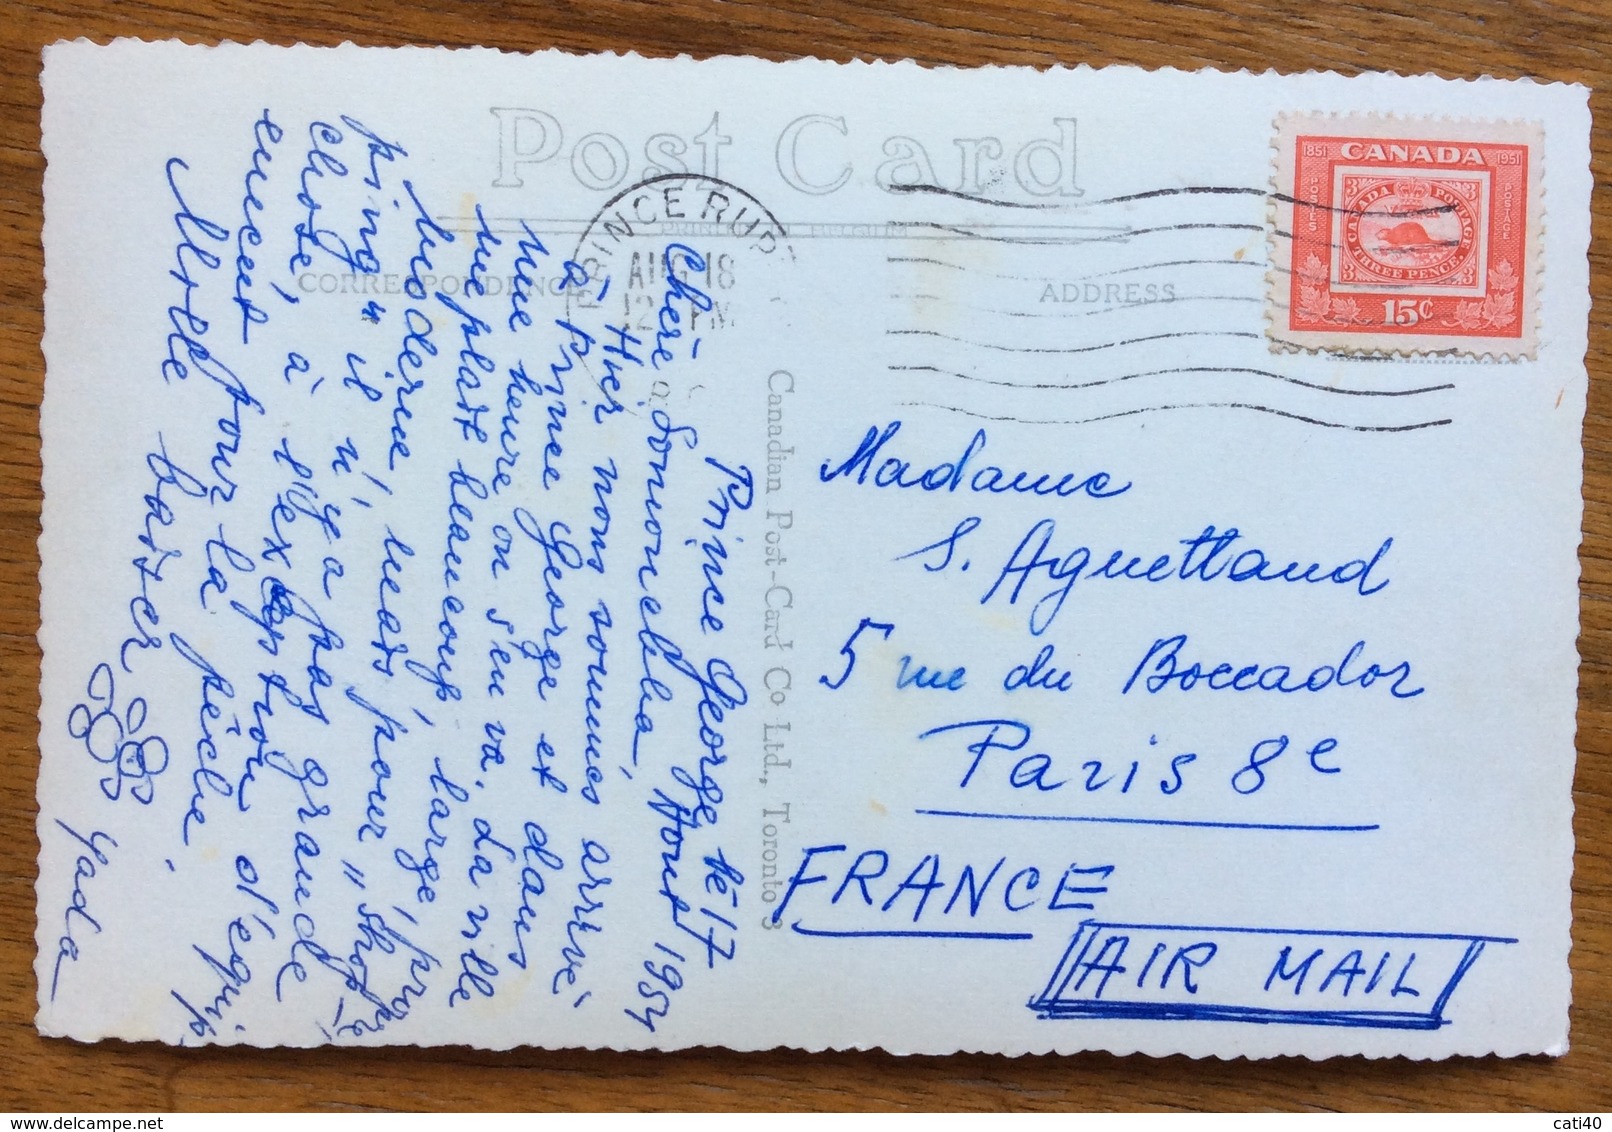 Post Card
PRINTED IN BELGIUM
CORRESPONDENCE
ADDRESS
PRINCE RUPE
AUG 18
12 PM
1851 CANADA 1951
POSTES POSTAGE
CANADA POSTAGE
THREE PENCE
3 3 3 3
15¢
Canadian Post-Card Co Ltd., Toronto 3
Prince George le 17
Août 1954
Chère Soniouchka,
Hier nous sommes arrivé
à Prince George et dans
une heure on s'en va. La ville
me plaît beaucoup, large,
moderne, mais pour „Shop-
ping" il n'y a pas grande
chose, à l'exception d'équip-
ement pour la pêche.
Mille baiser
Yada
Madame
S. Aguettand
5 rue du Boccador
Paris 8e
FRANCE
AIR MAIL
cati40